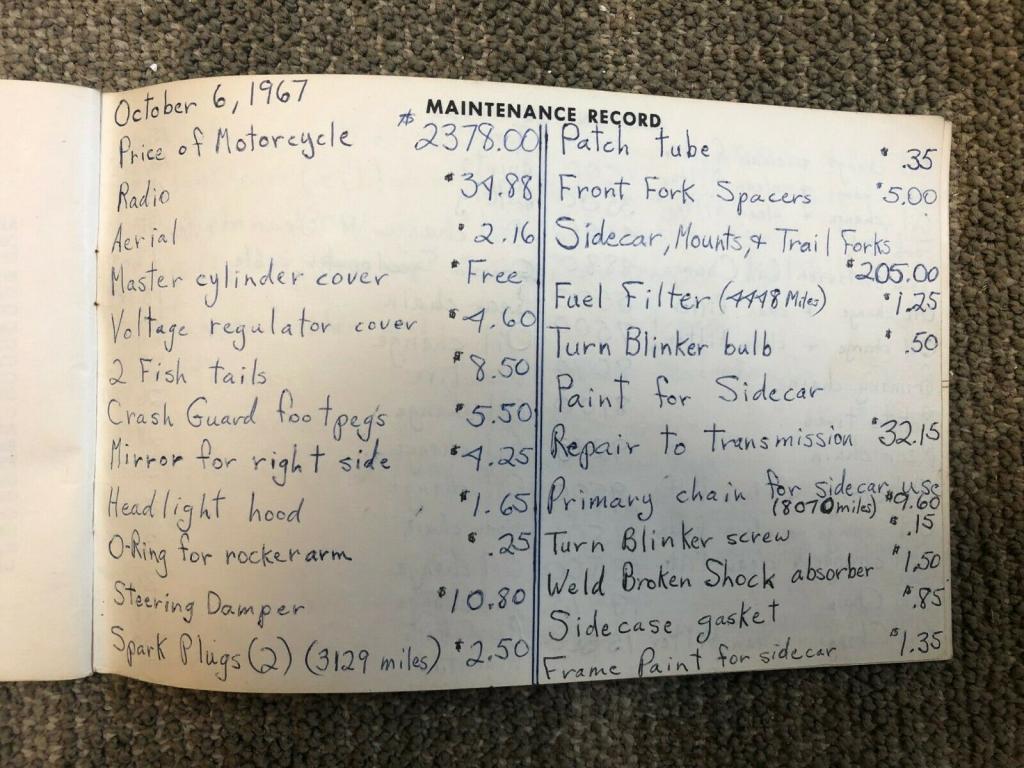 October 6, 1967
MAINTENANCE RECORD
Price of Motorcycle $2378.00
Radio $34.88
Aerial $2.16
Master cylinder cover $Free
Voltage regulator cover $4.60
2 Fish tails $8.50
Crash Guard footpegs $5.50
Mirror for right side $4.25
Headlight hood $1.65
O-Ring for rocker arm $.25
Steering Damper $10.80
Spark Plugs (2) (3129 miles) $2.50
Patch tube $.35
Front Fork Spacers $5.00
Sidecar, Mounts, & Trail Forks
$205.00
Fuel Filter (4448 Miles) $1.25
Turn Blinker bulb $.50
Paint for Sidecar
Repair to transmission $32.15
Primary chain for sidecar use
(8070 miles) $9.60
Turn Blinker screw $.15
Weld Broken Shock absorber $1.50
Sidecase gasket $.85
Frame Paint for sidecar $1.35